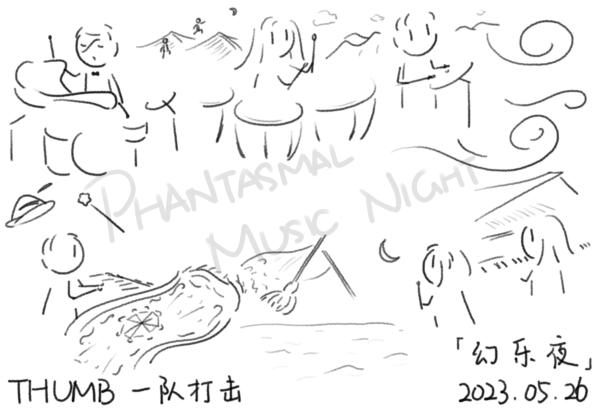 PHANTASMAL
MUSIC NIGHT
「幻乐夜」
THUMB 一队打击
2023.05.26